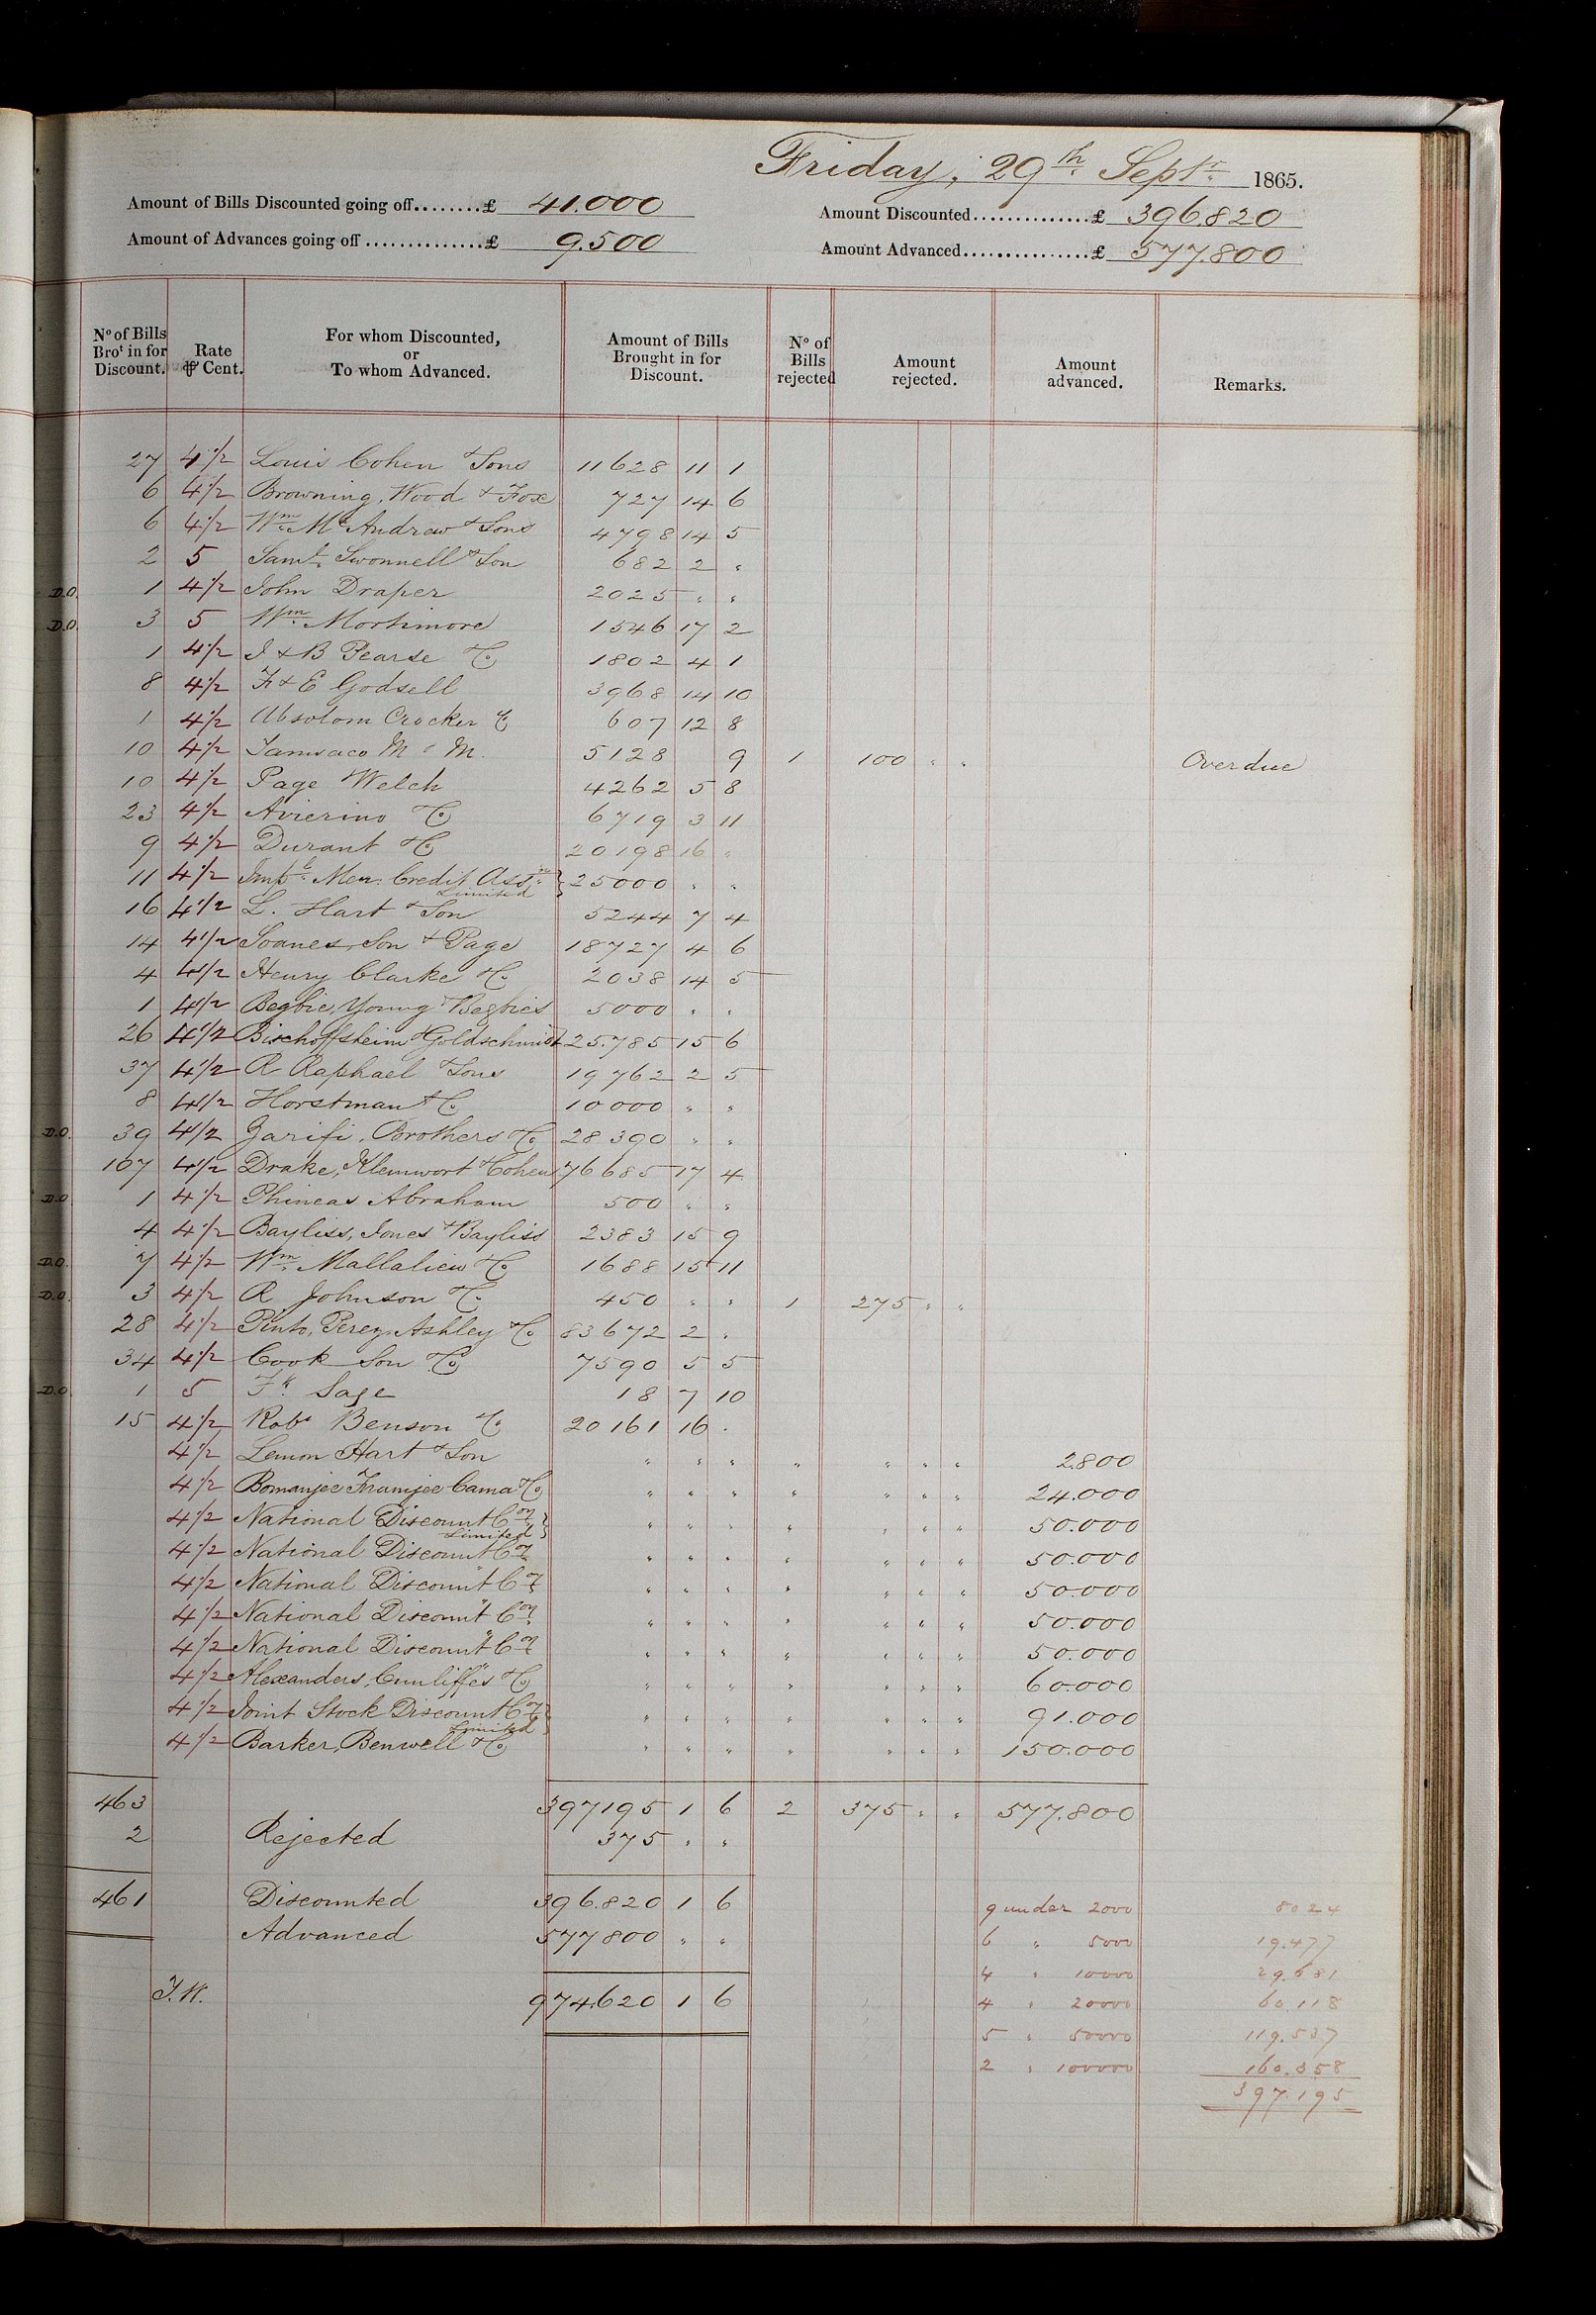 Friday, 29th Septr 1865.
Amount of Bills Discounted going off........£ 41.000
Amount Discounted..............£ 396.820
Amount of Advances going off..............£ 9.500
Amount Advanced...............£ 577.800
No of Bills Brot in for Discount. Rate ⅌ Cent. For whom Discounted, or To whom Advanced. Amount of Bills Brought in for Discount. No of Bills rejected Amount rejected. Amount advanced. Remarks.
27 4½ Louis Cohen & Sons 11628 11 1
6 4½ Browning, Wood & Fox 727 14 6
6 4½ Wm McAndrew & Sons 4798 14 5
2 5 Saml Swonnell & Son 682 2 "
D.O. 1 4½ John Draper 2025 " "
D.O. 3 5 Wm Mortimore 1546 17 2
1 4½ J & B Pearse & Co 1802 4 1
8 4½ F & E Godsell 3968 14 10
1 4½ Absolom Crocker & Co 607 12 8
10 4½ M & M. 5128 9 1 100 " " Overdue
10 4½ Page Welch 4262 5 8
23 4½ Avierino & Co 6719 3 11
9 4½ Durant & Co 20198 16 "
11 4½ Impl Mer. Credit Assn Limited 25000 " "
16 4½ L. Hart & Son 5244 7 4
14 4½ Soanes, Son & Page 18727 4 6
4 4½ Henry Clarke & Co 2038 14 5
1 4½ Begbie, Young & Begbies 5000 " "
26 4½ Bischoffsheim & Goldschmidt 25.785 15 6
37 4½ R Raphael & Sons 19762 2 5
8 4½ Horstman & Co 10000 " "
D.O. 39 4½ Zarifi, Brothers & Co 28390 " "
107 4½ Drake, Kleinwort & Cohen 76685 17 4
D.O. 1 4½ Phineas Abraham 500 " "
4 4½ Bayliss, Jones & Bayliss 2383 15 9
D.O. 7 4½ Wm Mallalieu & Co 1688 15 11
D.O. 3 4½ R Johnson & Co 450 " " 1 275 " "
28 4½ Pinto, Perez, Ashley & Co 83672 2 "
34 4½ Cook Son & Co 7590 5 5
D.O. 1 5 Fk Sage 18 7 10
15 4½ Robt Benson & Co 20161 16 "
4½ Lemon Hart & Son " " " " " " " 2.800
4½ Bomanjee Framjee Cama & Co " " " " " " " 24.000
4½ National Discount Coy Limited " " " " " " " 50.000
4½ National Discount Coy " " " " " " " 50.000
4½ National Discount Coy " " " " " " " 50.000
4½ National Discount Coy " " " " " " " 50.000
4½ National Discount Coy " " " " " " " 50.000
4½ Alexanders, Cunliffes & Co " " " " " " " 60.000
4½ Joint Stock Discount Coy Limited " " " " " " " 91.000
4½ Barker, Benwell & Co " " " " " " " 150.000
463 397195 1 6 2 375 " " 577.800
2 Rejected 375 " "
461 Discounted 396.820 1 6
Advanced 577800 " "
974.620 1 6
9 under 2000 8024
6 " 5000 19.477
4 " 10000 29.681
4 " 20000 60.118
5 " 50000 119.537
2 " 100000 160.358
397.195